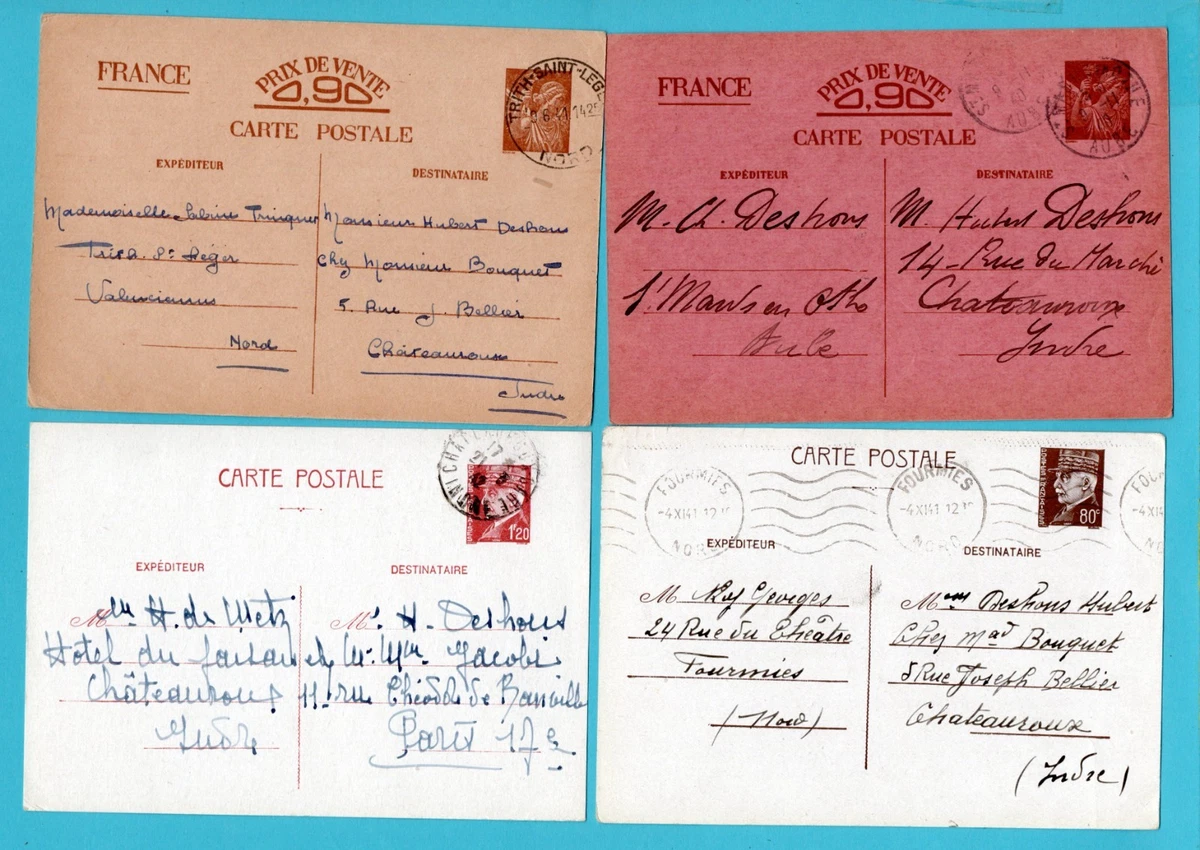 FRANCE
PRIX DE VENTE
0,90
CARTE POSTALE
TRITH-SAINT-LEGE
6.41 1425
NORD
EXPÉDITEUR
DESTINATAIRE
Mademoiselle Sabine Trinquer
Trith St Léger
Valenciennes
Nord
Monsieur Hubert Deshons
Chez Monsieur Bouquet
5 Rue J. Bellier
Châteauroux
Indre
FRANCE
PRIX DE VENTE
0,90
CARTE POSTALE
AUBE
EXPÉDITEUR
DESTINATAIRE
M. Ch. Deshons
St Mards en Othe
Aube
M. Hubert Deshons
14 - Rue du Marché
Chateauroux
Indre
CARTE POSTALE
1f20
EXPÉDITEUR
DESTINATAIRE
Mme H. de Metz
Hotel du faisan
Châteauroux
Indre
Mr H. Deshons
chez Mr Mme Jacobi
11 rue Théodore de Banville
Paris 17e
CARTE POSTALE
80c
FOURMIES
-4 XI41 12
NORD
FOURMIES
-4 XI41 12
NORD
EXPÉDITEUR
DESTINATAIRE
M Roy Georges
24 Rue du Théâtre
Fourmies
(Nord)
Deshons Hubert
Chez Mad Bouquet
5 Rue Joseph Bellier
Chateauroux
(Indre)